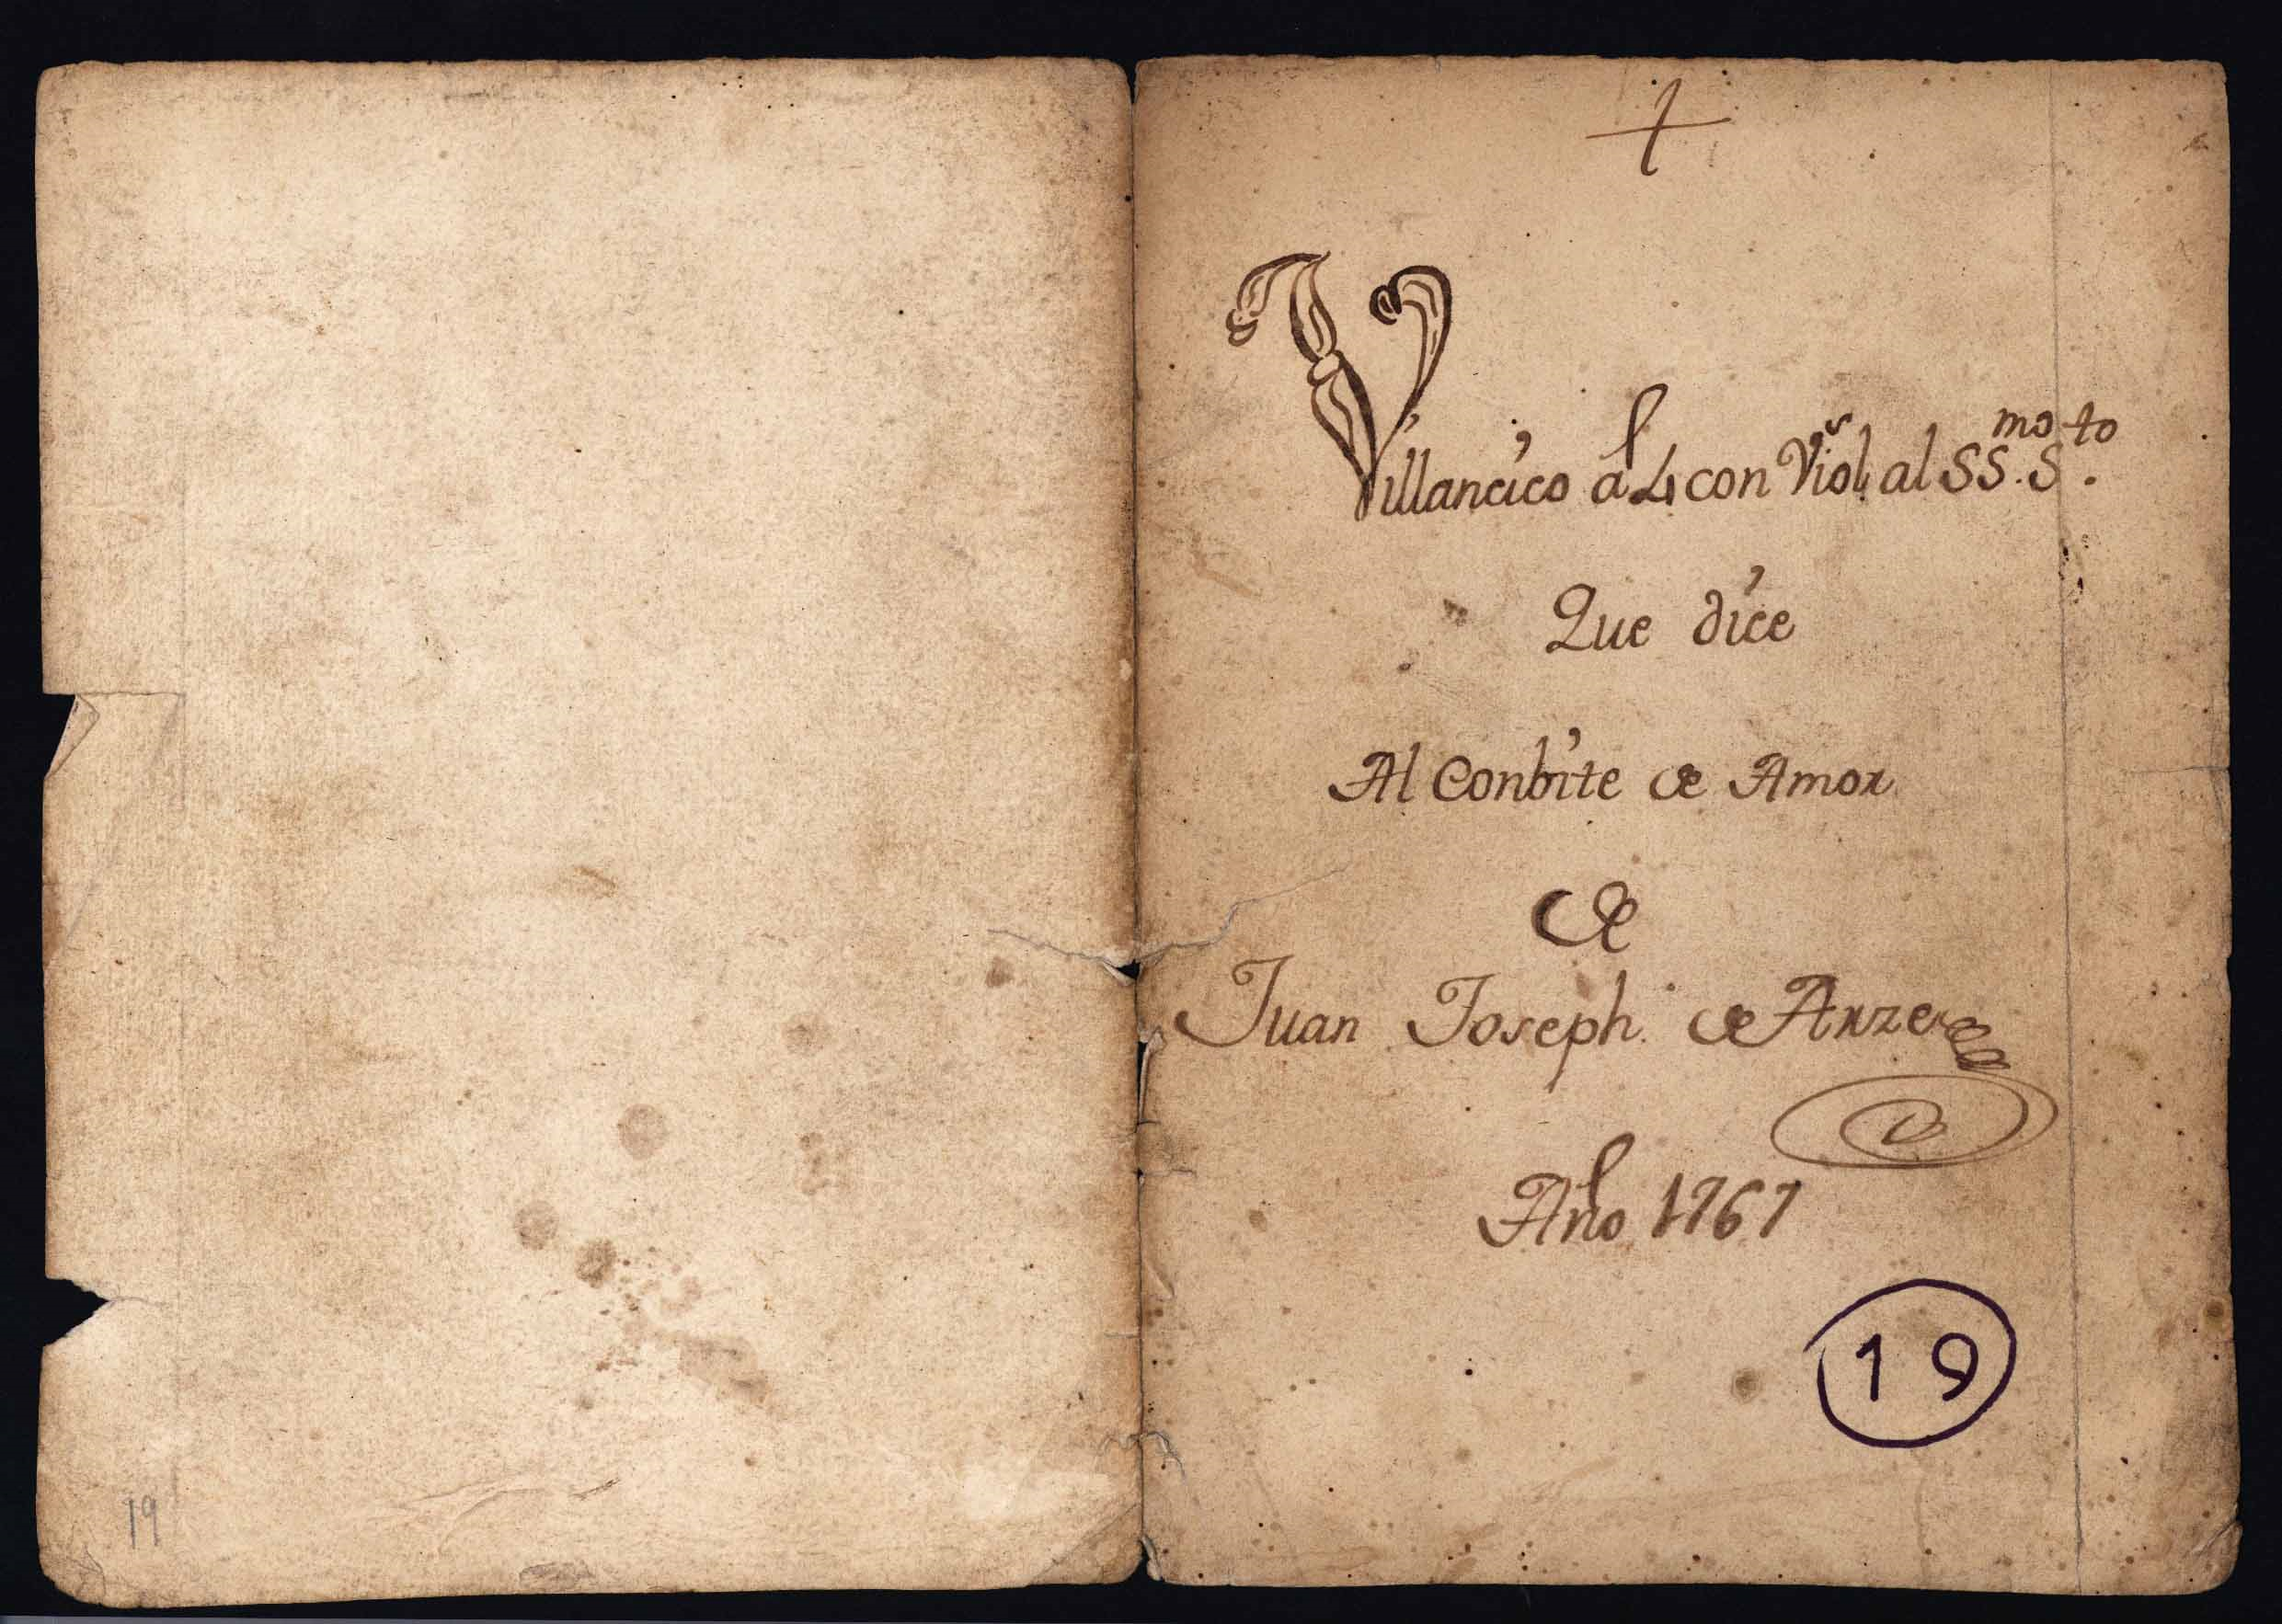 +
Villancico a 4 con Viol.s al SS.mo S.to
Que dice
Al Conbite de Amor
De
Juan Joseph de Arze
Año 1767
19
19